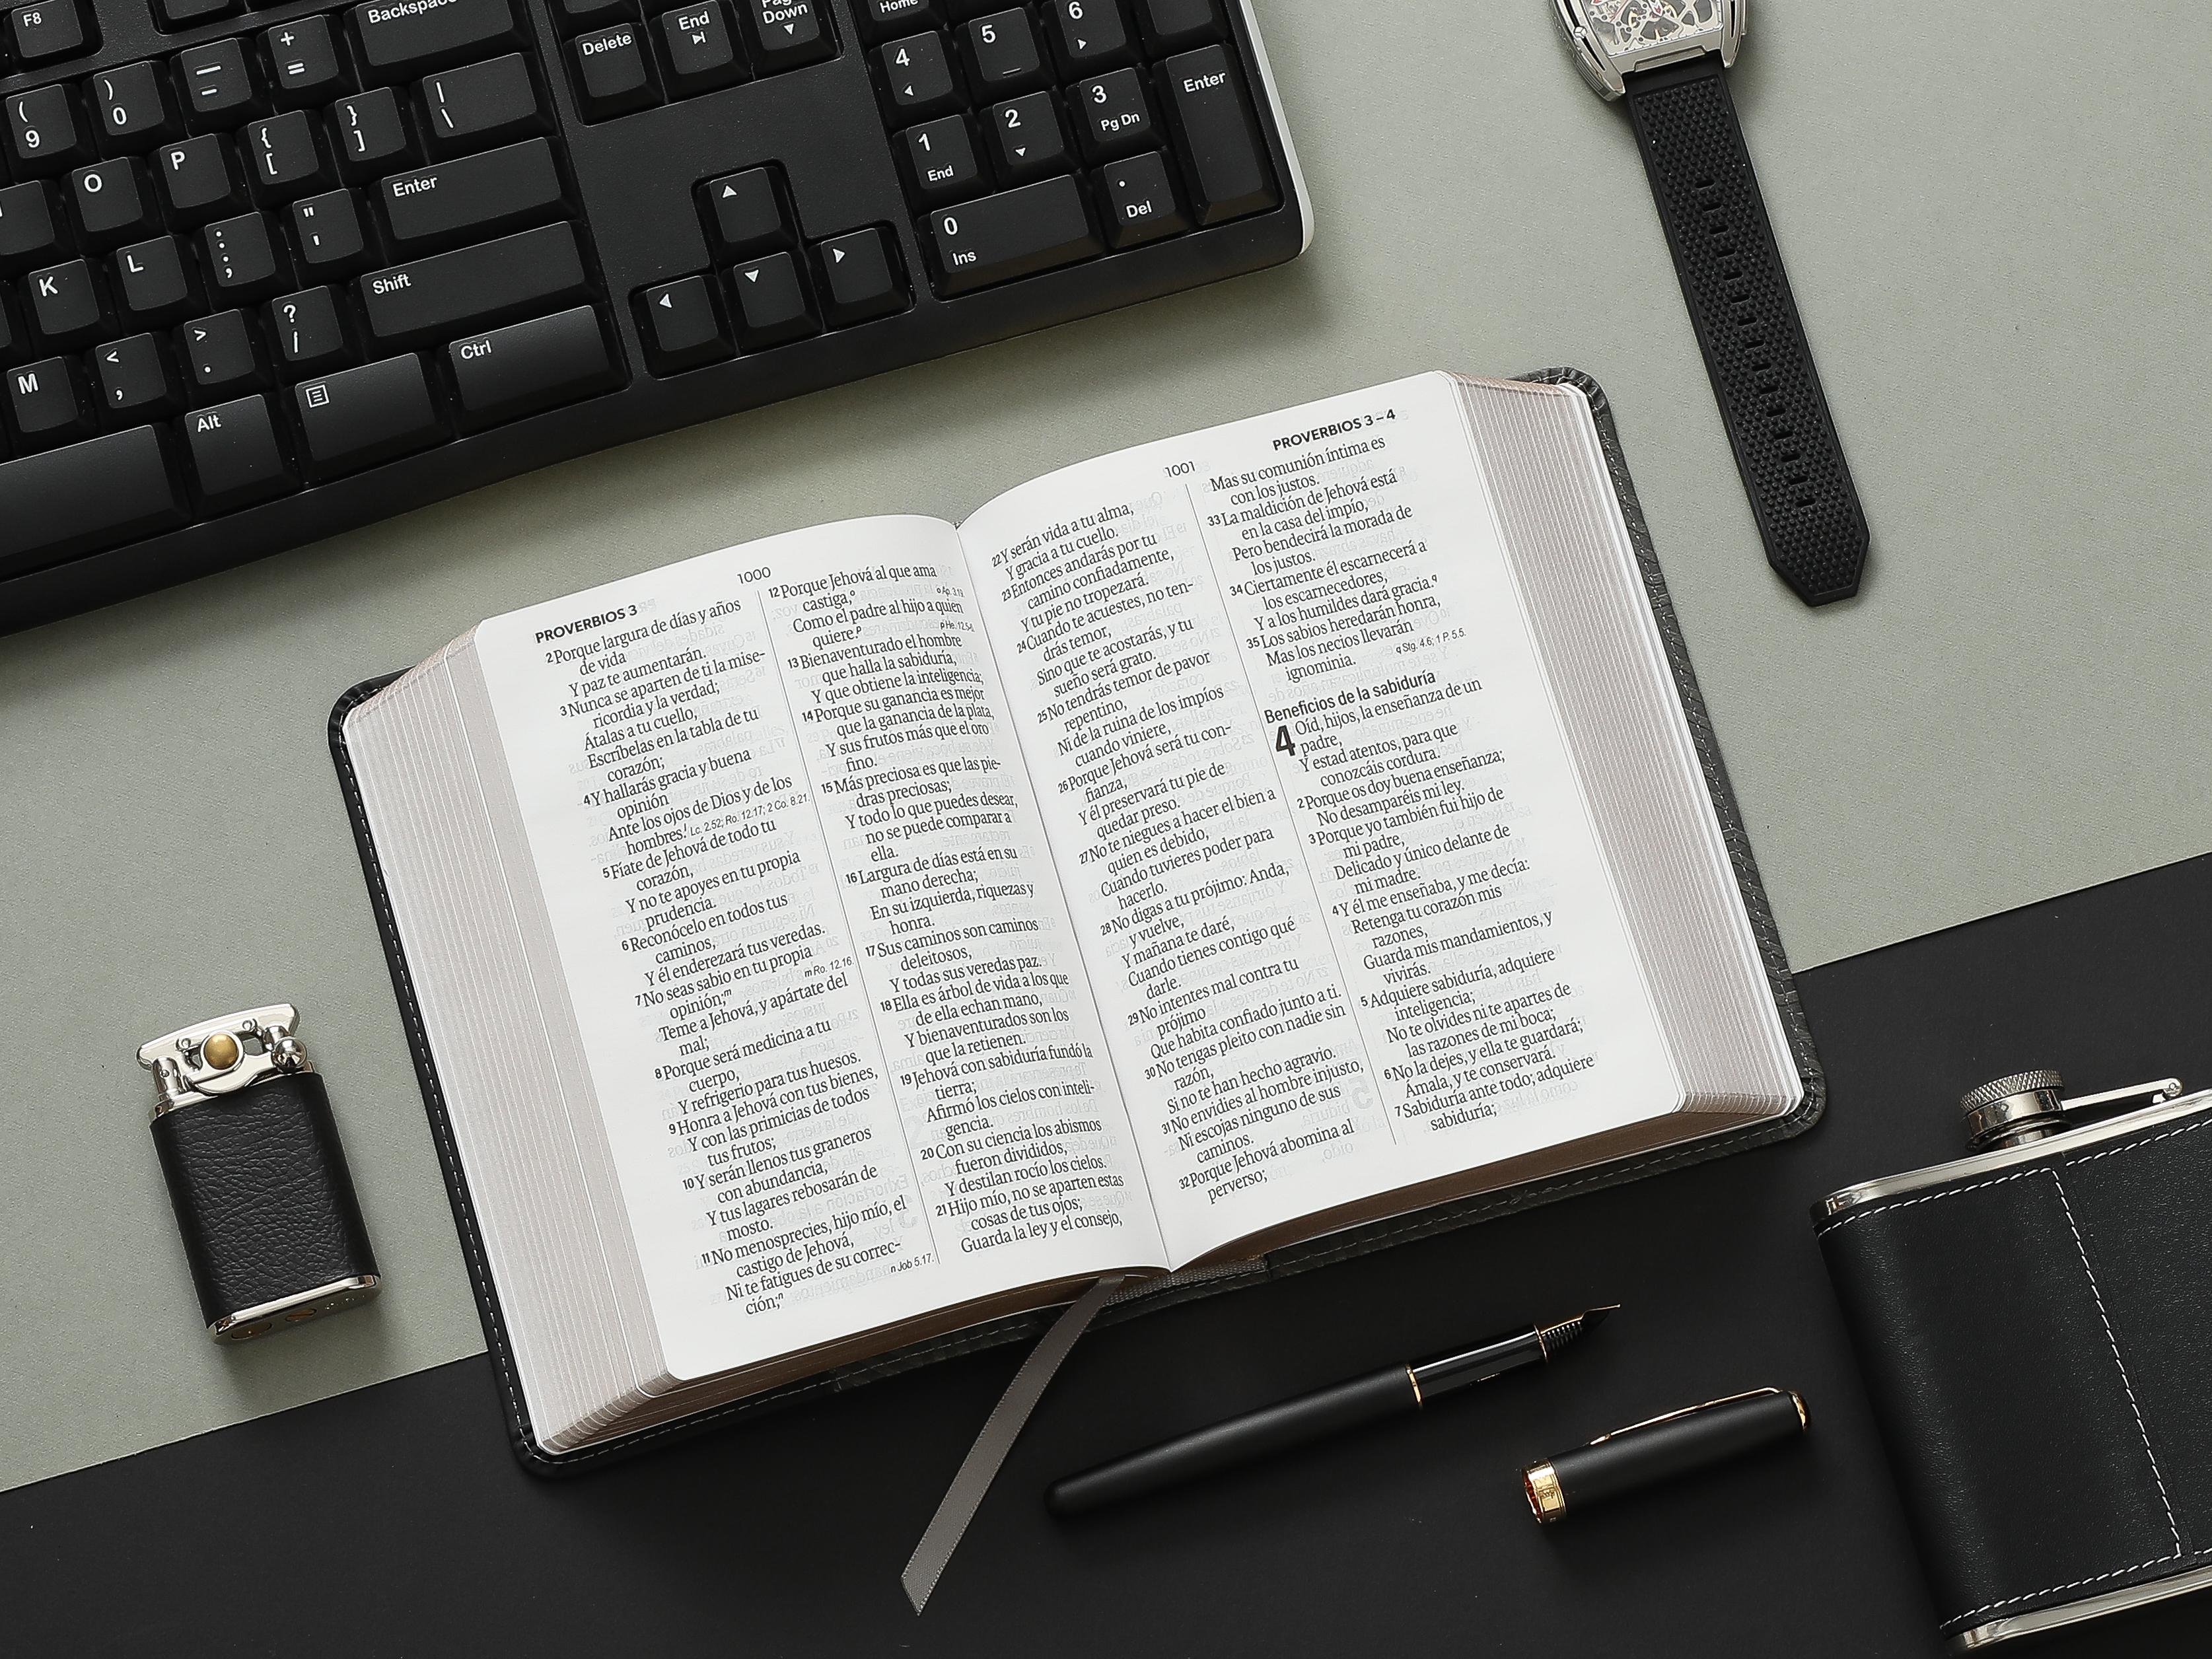 F8
Backspace
Delete
End
Page
Down
Home
4
5
6
+
=
—
)
0
(
9
|
\
}
]
{
[
P
O
Enter
1
End
2
3
Pg Dn
Enter
"
'
:
;
L
K
Shift
0
Ins
.
Del
?
/
>
.
<
,
M
Ctrl
Alt
PROVERBIOS 3
1000
2 Porque largura de días y años
de vida
Y paz te aumentarán.
3 Nunca se aparten de ti la mise-
ricordia y la verdad;
Átalas a tu cuello,
Escríbelas en la tabla de tu
corazón;
4 Y hallarás gracia y buena
opinión
Ante los ojos de Dios y de los
hombres.l Lc. 2.52; Ro. 12.17; 2 Co. 8.21.
5 Fíate de Jehová de todo tu
corazón,
Y no te apoyes en tu propia
prudencia.
6 Reconócelo en todos tus
caminos,
Y él enderezará tus veredas.
7 No seas sabio en tu propia
opinión;m m Ro. 12.16.
Teme a Jehová, y apártate del
mal;
8 Porque será medicina a tu
cuerpo,
Y refrigerio para tus huesos.
9 Honra a Jehová con tus bienes,
Y con las primicias de todos
tus frutos;
10 Y serán llenos tus graneros
con abundancia,
Y tus lagares rebosarán de
mosto.
11 No menosprecies, hijo mío, el
castigo de Jehová,
Ni te fatigues de su correc-
ción;n n Job 5.17.
12 Porque Jehová al que ama
castiga,o o Ap. 3.19.
Como el padre al hijo a quien
quiere.p p He. 12.5-6.
13 Bienaventurado el hombre
que halla la sabiduría,
Y que obtiene la inteligencia;
14 Porque su ganancia es mejor
que la ganancia de la plata,
Y sus frutos más que el oro
fino.
15 Más preciosa es que las pie-
dras preciosas;
Y todo lo que puedes desear,
no se puede comparar a
ella.
16 Largura de días está en su
mano derecha;
En su izquierda, riquezas y
honra.
17 Sus caminos son caminos
deleitosos,
Y todas sus veredas paz.
18 Ella es árbol de vida a los que
de ella echan mano,
Y bienaventurados son los
que la retienen.
19 Jehová con sabiduría fundó la
tierra;
Afirmó los cielos con inteli-
gencia.
20 Con su ciencia los abismos
fueron divididos,
Y destilan rocío los cielos.
21 Hijo mío, no se aparten estas
cosas de tus ojos;
Guarda la ley y el consejo,
1001
PROVERBIOS 3 – 4
22 Y serán vida a tu alma,
Y gracia a tu cuello.
23 Entonces andarás por tu
camino confiadamente,
Y tu pie no tropezará.
24 Cuando te acuestes, no ten-
drás temor,
Sino que te acostarás, y tu
sueño será grato.
25 No tendrás temor de pavor
repentino,
Ni de la ruina de los impíos
cuando viniere,
26 Porque Jehová será tu con-
fianza,
Y él preservará tu pie de
quedar preso.
27 No te niegues a hacer el bien a
quien es debido,
Cuando tuvieres poder para
hacerlo.
28 No digas a tu prójimo: Anda,
y vuelve,
Y mañana te daré,
Cuando tienes contigo qué
darle.
29 No intentes mal contra tu
prójimo
Que habita confiado junto a ti.
30 No tengas pleito con nadie sin
razón,
Si no te han hecho agravio.
31 No envidies al hombre injusto,
Ni escojas ninguno de sus
caminos.
32 Porque Jehová abomina al
perverso;
Mas su comunión íntima es
con los justos.
33 La maldición de Jehová está
en la casa del impío,
Pero bendecirá la morada de
los justos.
34 Ciertamente él escarnecerá a
los escarnecedores,
Y a los humildes dará gracia.q
35 Los sabios heredarán honra,
Mas los necios llevarán
ignominia. q Stg. 4.6; 1 P. 5.5.
Beneficios de la sabiduría
4 Oíd, hijos, la enseñanza de un
padre,
Y estad atentos, para que
conozcáis cordura.
2 Porque os doy buena enseñanza;
No desamparéis mi ley.
3 Porque yo también fui hijo de
mi padre,
Delicado y único delante de
mi madre.
4 Y él me enseñaba, y me decía:
Retenga tu corazón mis
razones,
Guarda mis mandamientos, y
vivirás.
5 Adquiere sabiduría, adquiere
inteligencia;
No te olvides ni te apartes de
las razones de mi boca;
6 No la dejes, y ella te guardará;
Ámala, y te conservará.
7 Sabiduría ante todo; adquiere
sabiduría;